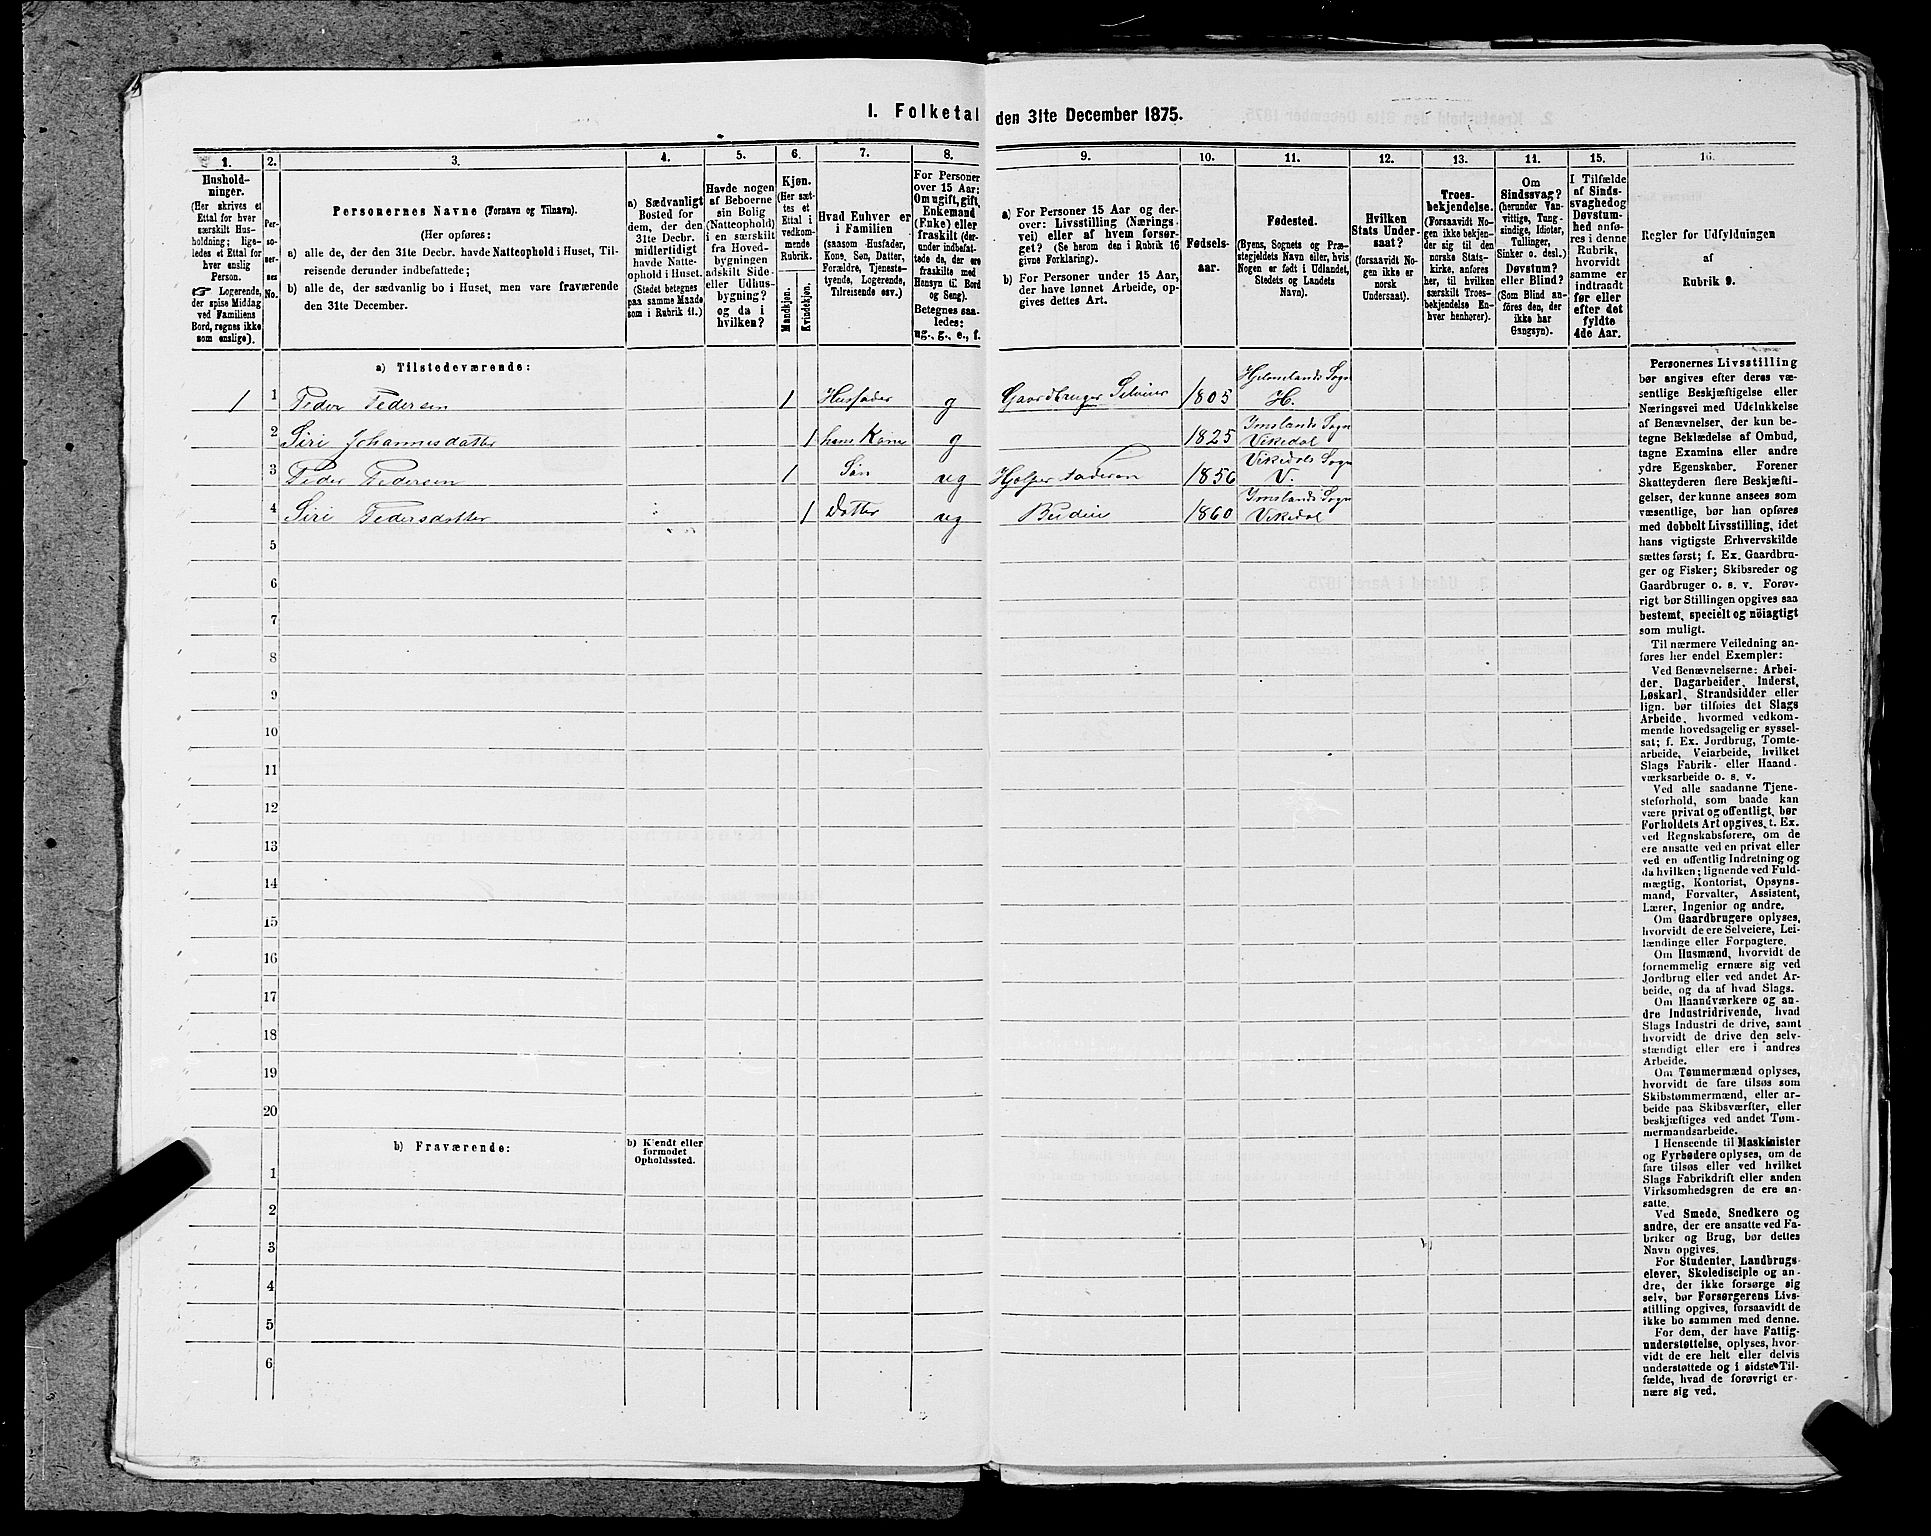 I. Folketal den 31te December 1875.
1. 2. 3. 4. 5. 6. 7. 8. 9. 10. 11. 12. 13. 14. 15. 16.
Hushold-
ninger.
(Her skrives et
Ettal for hver
særskilt Hus-
holdning; lige-
ledes et Ettal for
hver enslig
Person.
☞ Logerende,
der spise Middag
ved Familiens
Bord, regnes ikke
som enslige).
Per-
so-
ner-
nes
No.
Personernes Navne (Fornavn og Tilnavn).
(Her opføres:
a) alle de, der den 31te Decbr. havde Natteophold i Huset, Til-
reisende derunder indbefattede;
b) alle de, der sædvanlig bo i Huset, men vare fraværende
den 31te December.
a) Sædvanligt
Bosted for
dem, der den
31te Decbr.
midlertidigt
havde Natte-
ophold i Huset.
(Stedet betegnes
paa samme Maade
som i Rubrik 11.)
Havde nogen
af Beboerne
sin Bolig
(Natteophold)
i en særskilt
fra Hoved-
bygningen
adskilt Side-
eller Udhus-
bygning?
og da i
hvilken?
Kjøn.
(Her sæt-
tes et
Ettal i
vedkom-
mende
Rubrik.
Mandkjøn.
Kvindekjøn.
Hvad Enhver er
i Familien
(saasom Husfader,
Kone, Søn, Datter,
Forældre, Tjeneste-
tyende, Logerende,
Tilreisende osv.)
For Personer
over 15 Aar:
Om ugift, gift,
Enkemand
(Enke) eller
fraskilt (der-
under indbefat-
tede de, der ere
fraskilte med
Hensyn til Bord
og Seng).
Betegnes saa-
ledes:
ug., g., e., f.
a) For Personer 15 Aar og der-
over: Livsstilling (Nærings-
vei) eller af hvem forsør-
get? (Se herom den i Rubrik 16
givne Forklaring).
b) For Personer under 15 Aar,
der have lønnet Arbeide, op-
gives dettes Art.
Fødsels-
aar.
Fødested.
(Byens, Sognets og Præ-
stegjeldets Navn eller, hvis
Nogen er født i Udlandet,
Stedets og Landets
Navn).
Hvilken
Stats Under-
saat?
(forsaavidt No-
gen ikke er
norsk
Undersaat).
Troes-
bekjendelse.
(Forsaavidt No-
gen ikke bekjen-
der sig til den
norske Stats-
kirke, anføres
her, til hvilken
særskilt Troes-
bekjendelse En-
hver henhører).
Om
Sindssvag?
(herunder Van-
vittige, Tung-
sindige, Idioter,
Tullinger,
Sinker o. desl.)
Døvstum?
eller Blind?
(Som Blind an-
føres den, der
ikke har
Gangsyn).
I Tilfælde
af Sinds-
svaghed og
Døvstum-
hed anfø-
res i denne
Rubrik,
hvorvidt
samme er
indtraadt
før eller
efter det
fyldte
4de Aar.
Regler for Udfyldningen
af
Rubrik 9.
a) Tilstedeværende:
1 1 Peder Pedersen 1 Husfader g Gaardbruger Selveier 1805 Hjelmelands Sogn
H.
2 Siri Johannesdatter 1 hans Kone g 1825 Imslands Sogn
Vikedal
3 Peder Pedersen 1 Søn ug Hjelper Faderen 1856 Vikedals Sogn
V.
4 Siri Pedersdatter 1 Datter ug Budeie 1860 Imslands Sogn
Vikedal
5
6
7
8
9
10
11
12
13
14
15
16
17
18
19
20
b) Fraværende:
b) Kjendt eller
formodet
Opholdssted.
1
2
3
4
5
6
Personernes Livsstilling
bør angives efter deres væ-
sentlige Beskjæftigelse eller
Næringsvei med Udelukkelse
af Benævnelser, der kun be-
tegne Beklædelse af Ombud,
tagne Examina eller andre
ydre Egenskaber. Forener
Skatteyderen flere Beskjæfti-
gelser, der kunne ansees som
væsentlige, bør han opføres
med dobbelt Livsstilling, idet
hans vigtigste Erhvervskilde
sættes først; f. Ex. Gaardbru-
ger og Fisker; Skibsreder og
Gaardbruger o. s. v. Forøv-
rigt bør Stillingen opgives saa
bestemt, specielt og nöiagtigt
som muligt.
Til nærmere Veiledning an-
føres her endel Exempler:
Ved Benævnelserne: Arbei-
der, Dagarbeider, Inderst,
Løskarl, Strandsidder eller
lign. bør tilføies det Slags
Arbeide, hvormed vedkom-
mende hovedsagelig er syssel-
sat; f. Ex. Jordbrug, Tomte-
arbeide, Veiarbeide, hvilket
Slags Fabrik- eller Haand-
værksarbeide o. s. v.
Ved alle saadanne Tjene-
steforhold, som baade kan
være privat og offentligt, bør
Forholdets Art opgives, t. Ex.
ved Regnskabsførere, om de
ere ansatte ved en privat eller
ved en offentlig Indretning og
da hvilken; lignende ved Fuld-
mægtig, Kontorist, Opsyns-
mand, Forvalter, Assistent,
Lærer, Ingeniør og andre.
Om Gaardbrugere oplyses,
hvorvidt de ere Selveiere, Lei-
lændinge eller Forpagtere.
Om Husmænd, hvorvidt de
fornemmelig ernære sig ved
Jordbrug eller ved andet Ar-
beide, og da af hvad Slags.
Om Haandværkere og an-
dre Industridrivende, hvad
Slags Industri de drive, samt
hvorvidt de drive den selv-
stændigt eller ere i andres
Arbeide.
Om Tømmermænd oplyses,
hvorvidt de fare tilsøs som
Skibstømmermænd, eller ar-
beide paa Skibsværfter, eller
beskjæftiges ved andet Tøm-
mermandsarbeide.
I Henseende til Maskinister
og Fyrbødere oplyses, om de
fare tilsøs eller ved hvilket
Slags Fabrikdrift eller anden
Virksomhedsgren de ere an-
satte.
Ved Smede, Snedkere og
andre, der ere ansatte ved Fa-
briker og Brug, bør dettes
Navn opgives.
For Studenter, Landbrugs-
elever, Skoledisciple og an-
dre, der ikke forsørge sig
selv, bør Forsørgerens Livs-
stilling opgives, forsaavidt de
ikke bo sammen med denne.
For dem, der have Fattig-
understøttelse, oplyses, hvor-
vidt de ere helt eller delvis
understøttede og i sidste Til-
fælde, hvad de forøvrigt er-
nære sig ved.